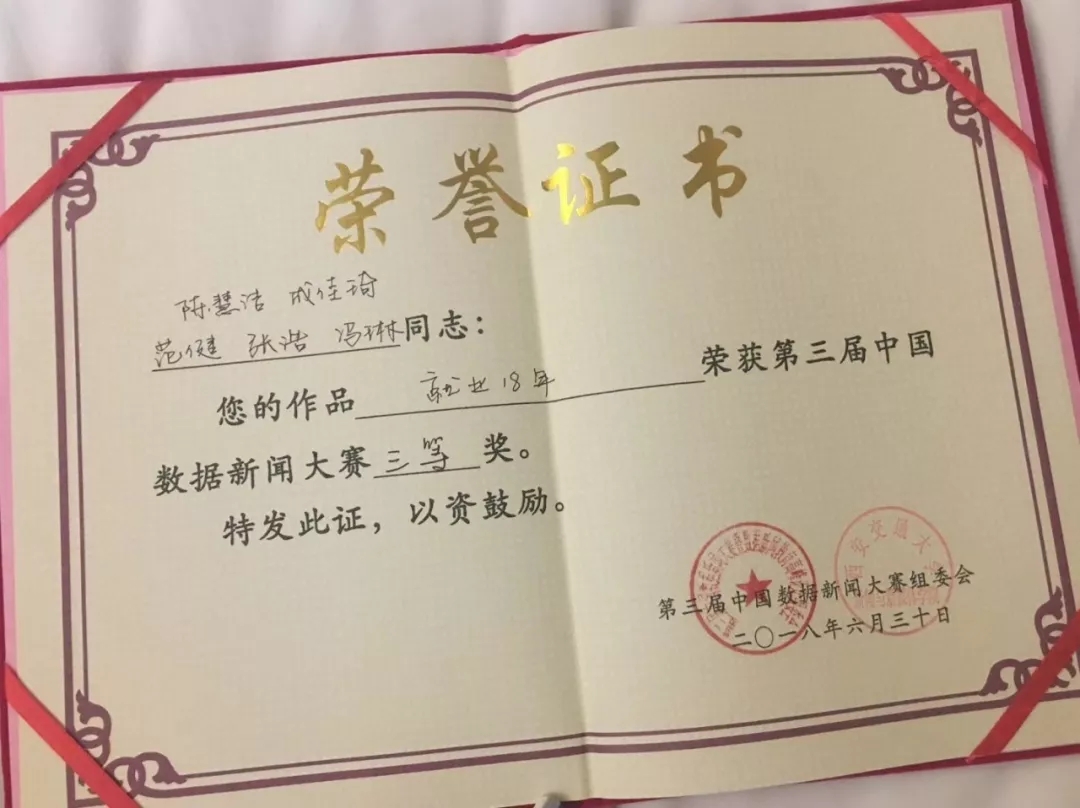 荣誉证书
陈慧洁 成佳琦
范健 张浩 冯琳同志：
您的作品 就业18年 荣获第三届中国
数据新闻大赛三等奖。
特发此证，以资鼓励。
西安交通大学
第三届中国数据新闻大赛组委会
二〇一八年六月三十日